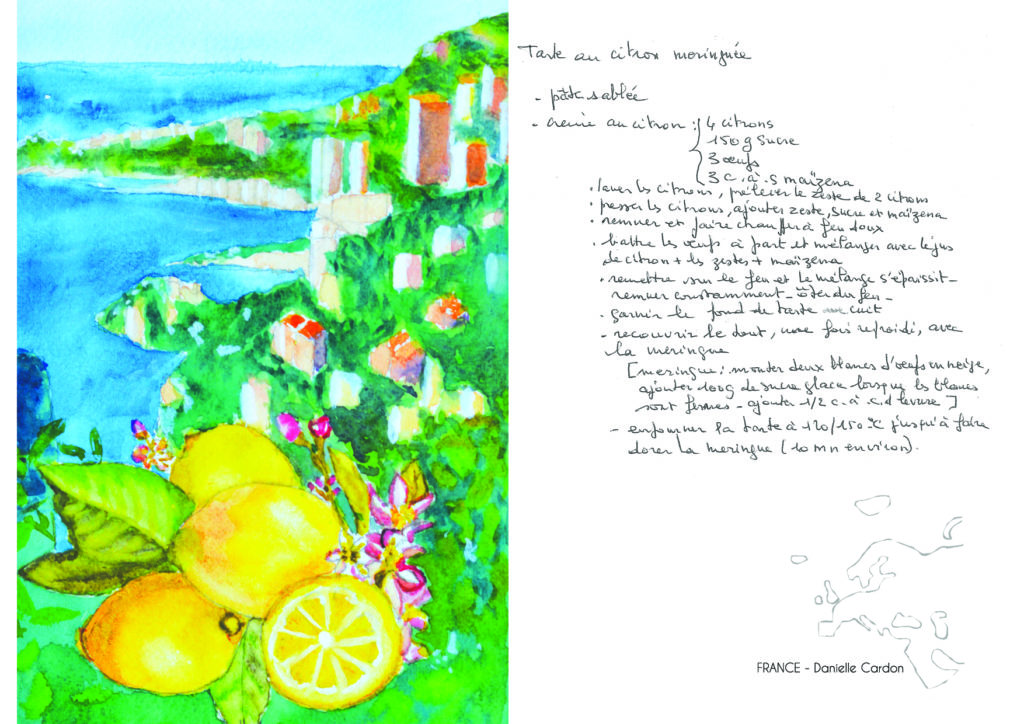 Tarte au citron meringuée
- pâte sablée
- crème au citron : { 4 citrons
150 g sucre
3 œufs
3 c. à. s maïzena
• laver les citrons, prélever le zeste de 2 citrons
• presser les citrons, ajouter zeste, sucre et maïzena
• remuer et faire chauffer à feu doux
• battre les œufs à part et mélanger avec le jus
de citron + les zestes + maïzena
• remettre sur le feu et le mélange s'épaissit -
remuer constamment - ôter du feu -
- garnir le fond de tarte cuit
- recouvrir le tout, une fois refroidi, avec
la meringue
[meringue : monter deux blancs d'œufs en neige,
ajouter 100g de sucre glace lorsque les blancs
sont fermes - ajouter 1/2 c. à c. d levure ]
- enfourner la tarte à 120/150 °C jusqu'à faire
dorer la meringue (10 mn environ).
FRANCE - Danielle Cardon